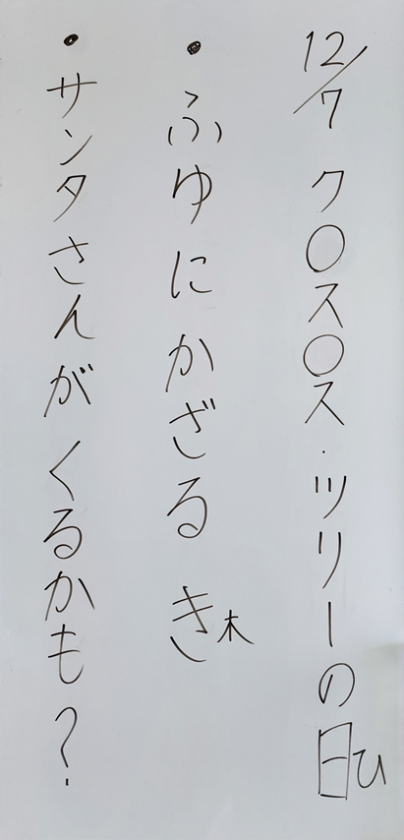 12/7 ク〇ス〇ス・ツリーの日ひ
・ふゆにかざる き木
・サンタさんが くるかも？